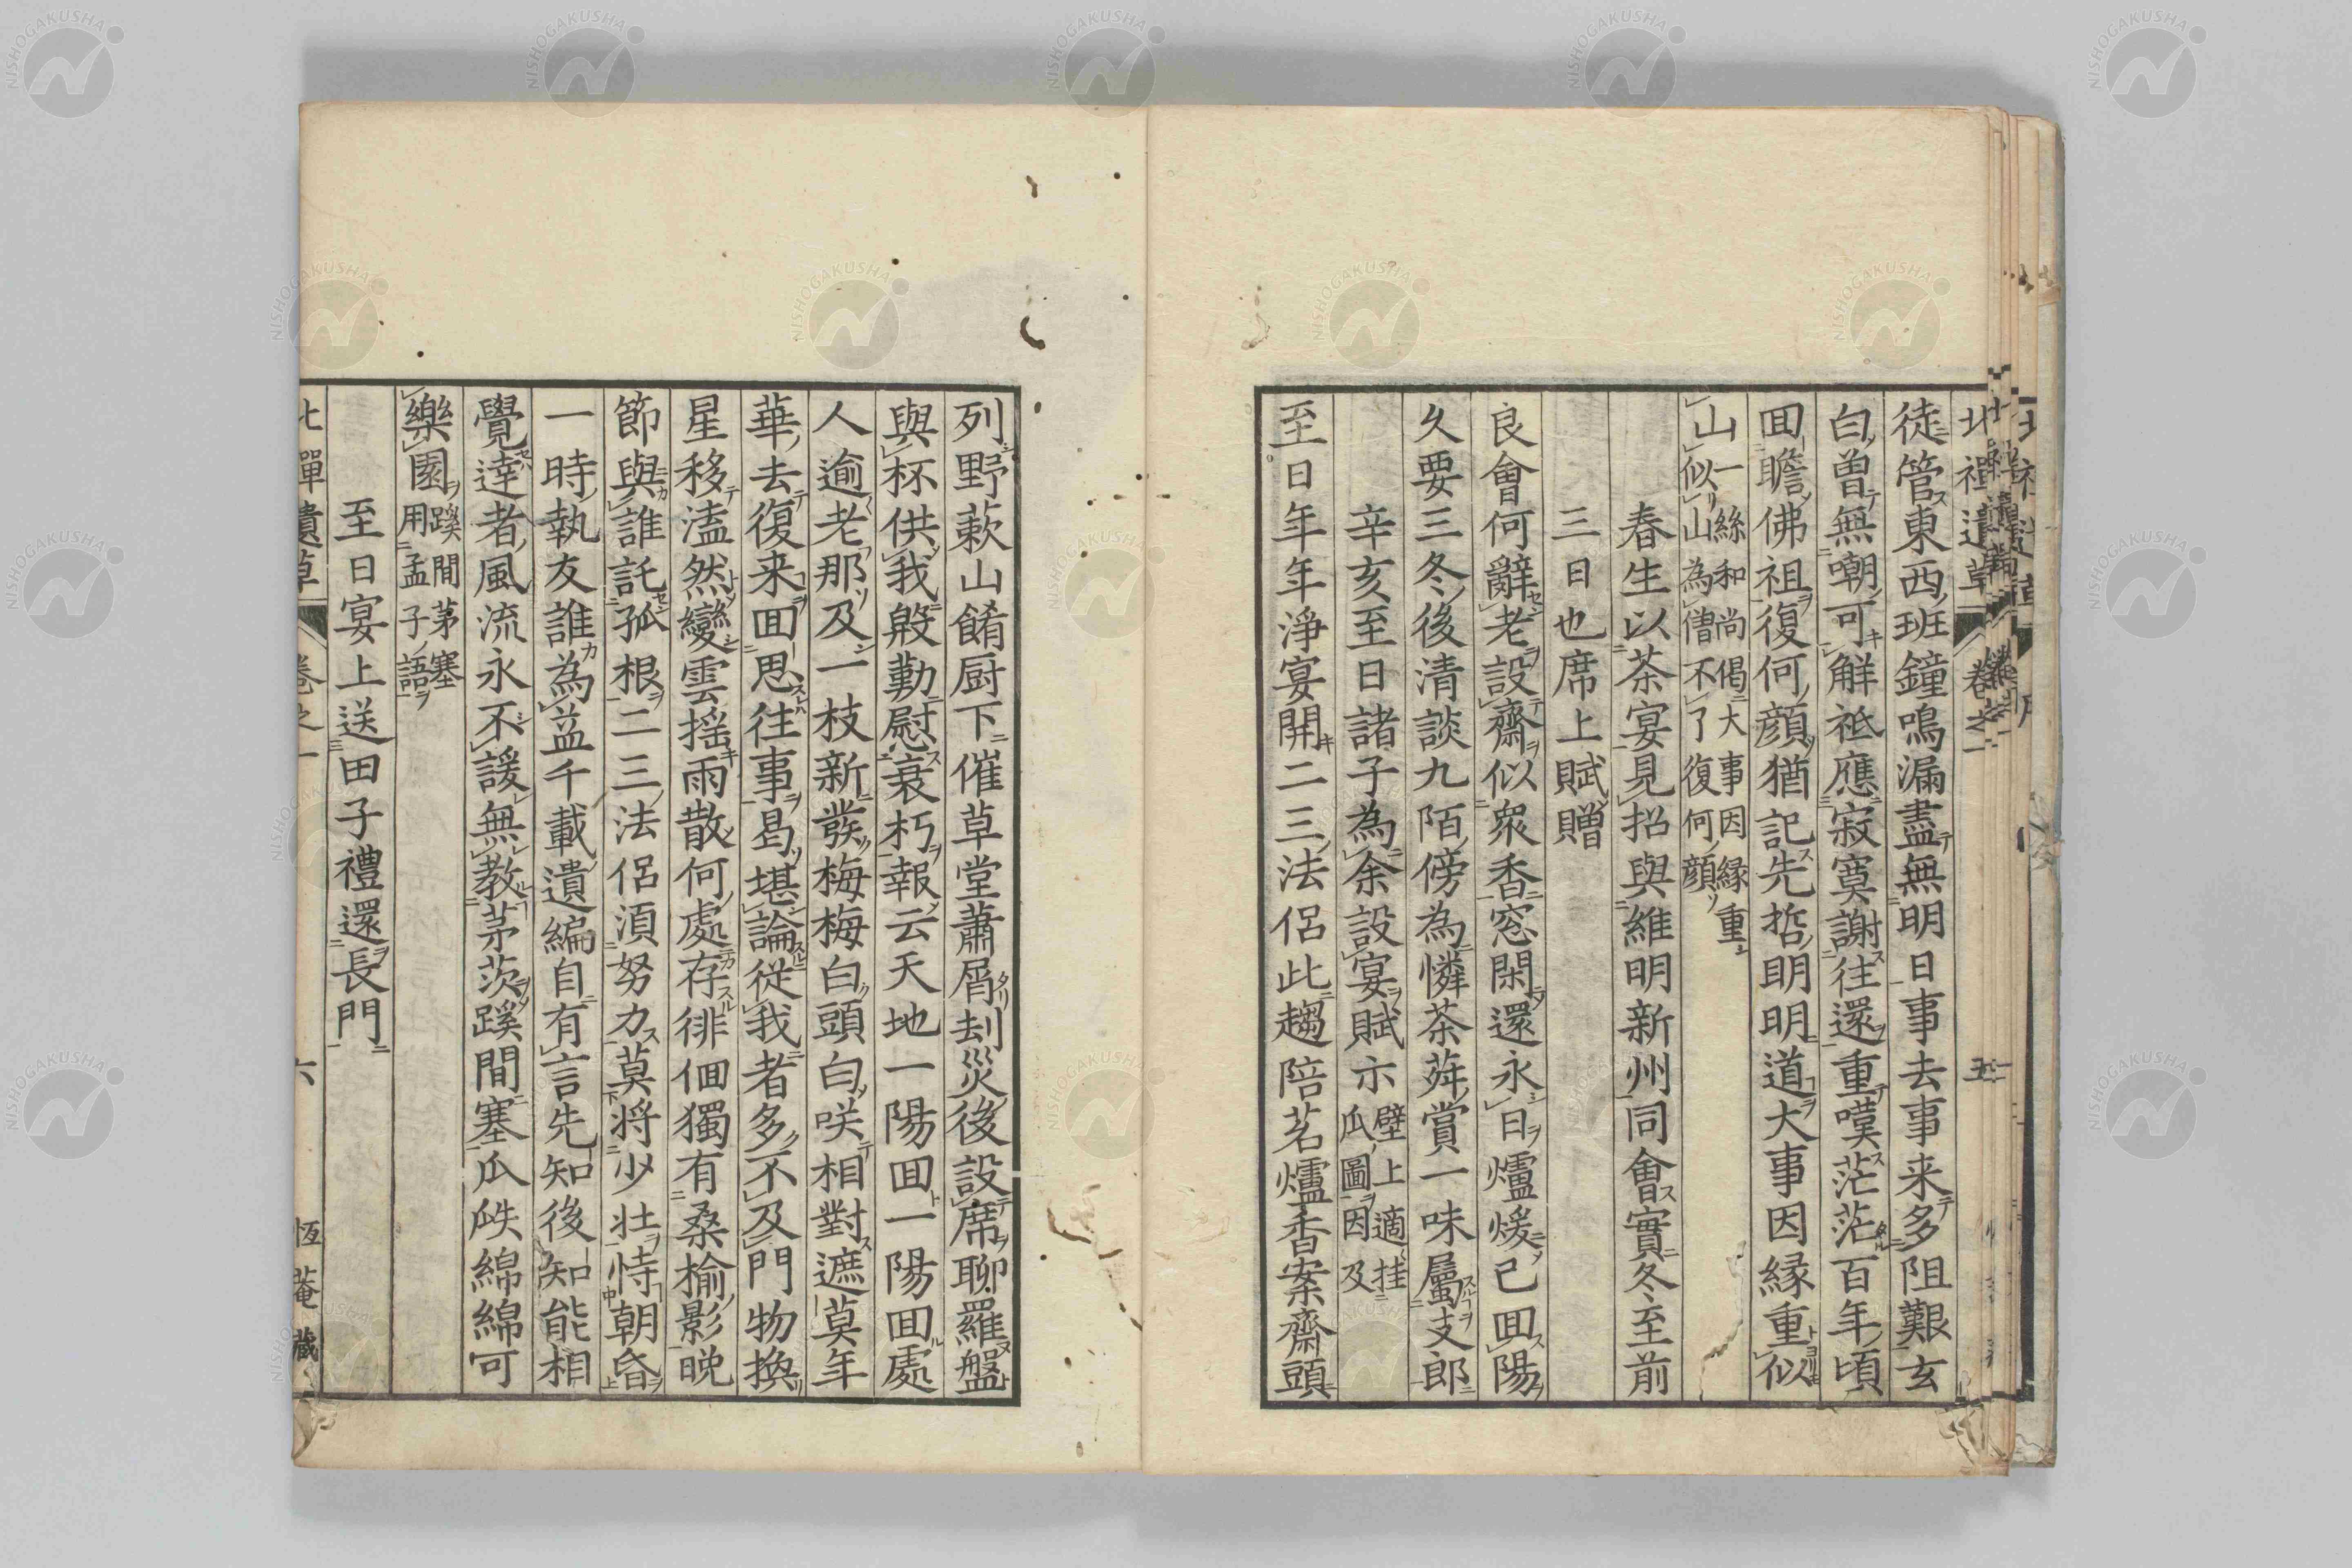 徒管東西班鐘鳴漏盡無明日事去事来多阻艱玄
白曽無嘲可解祗應寂寞謝往還重嘆茫茫百年頃
囬瞻佛祖復何顔猶記先哲明明道大事因縁重似
山一絲和尚偈大事因縁重
似山為僧不了復何顔
春生以茶宴見招與維明新州同會實冬至前
三日也席上賦贈
良會何辭老設齋似衆香窓閑還永日爐煖已囬陽
久要三冬後清談九陌傍為憐茶荈賞一味屬支郎
辛亥至日諸子為余設宴賦示壁上適挂
瓜圖因及
至日年年淨宴開二三法侶此趨陪茗爐香案齋頭
列野蔌山餚厨下催草堂蕭屑刦災後設席聊羅盤
與杯供我慇勤慰衰朽報云天地一陽囬一陽囬處
人逾老那及一枝新發梅梅白頭白咲相對遮莫年
華去復来囬思往事曷堪論従我者多不及門物換
星移溘然變雲揺雨散何處存徘徊獨有桑楡影晩
節與誰託孤根二三法侶湏努力莫将少壮恃朝昏
一時執友誰為益千載遺編自有言先知後知能相
覺達者風流永不諼無教茅茨蹊間塞瓜瓞綿綿可
樂園蹊間茅塞
用孟子語
至日宴上送田子禮還長門
北禪遺草 卷之一 六 恆菴藏